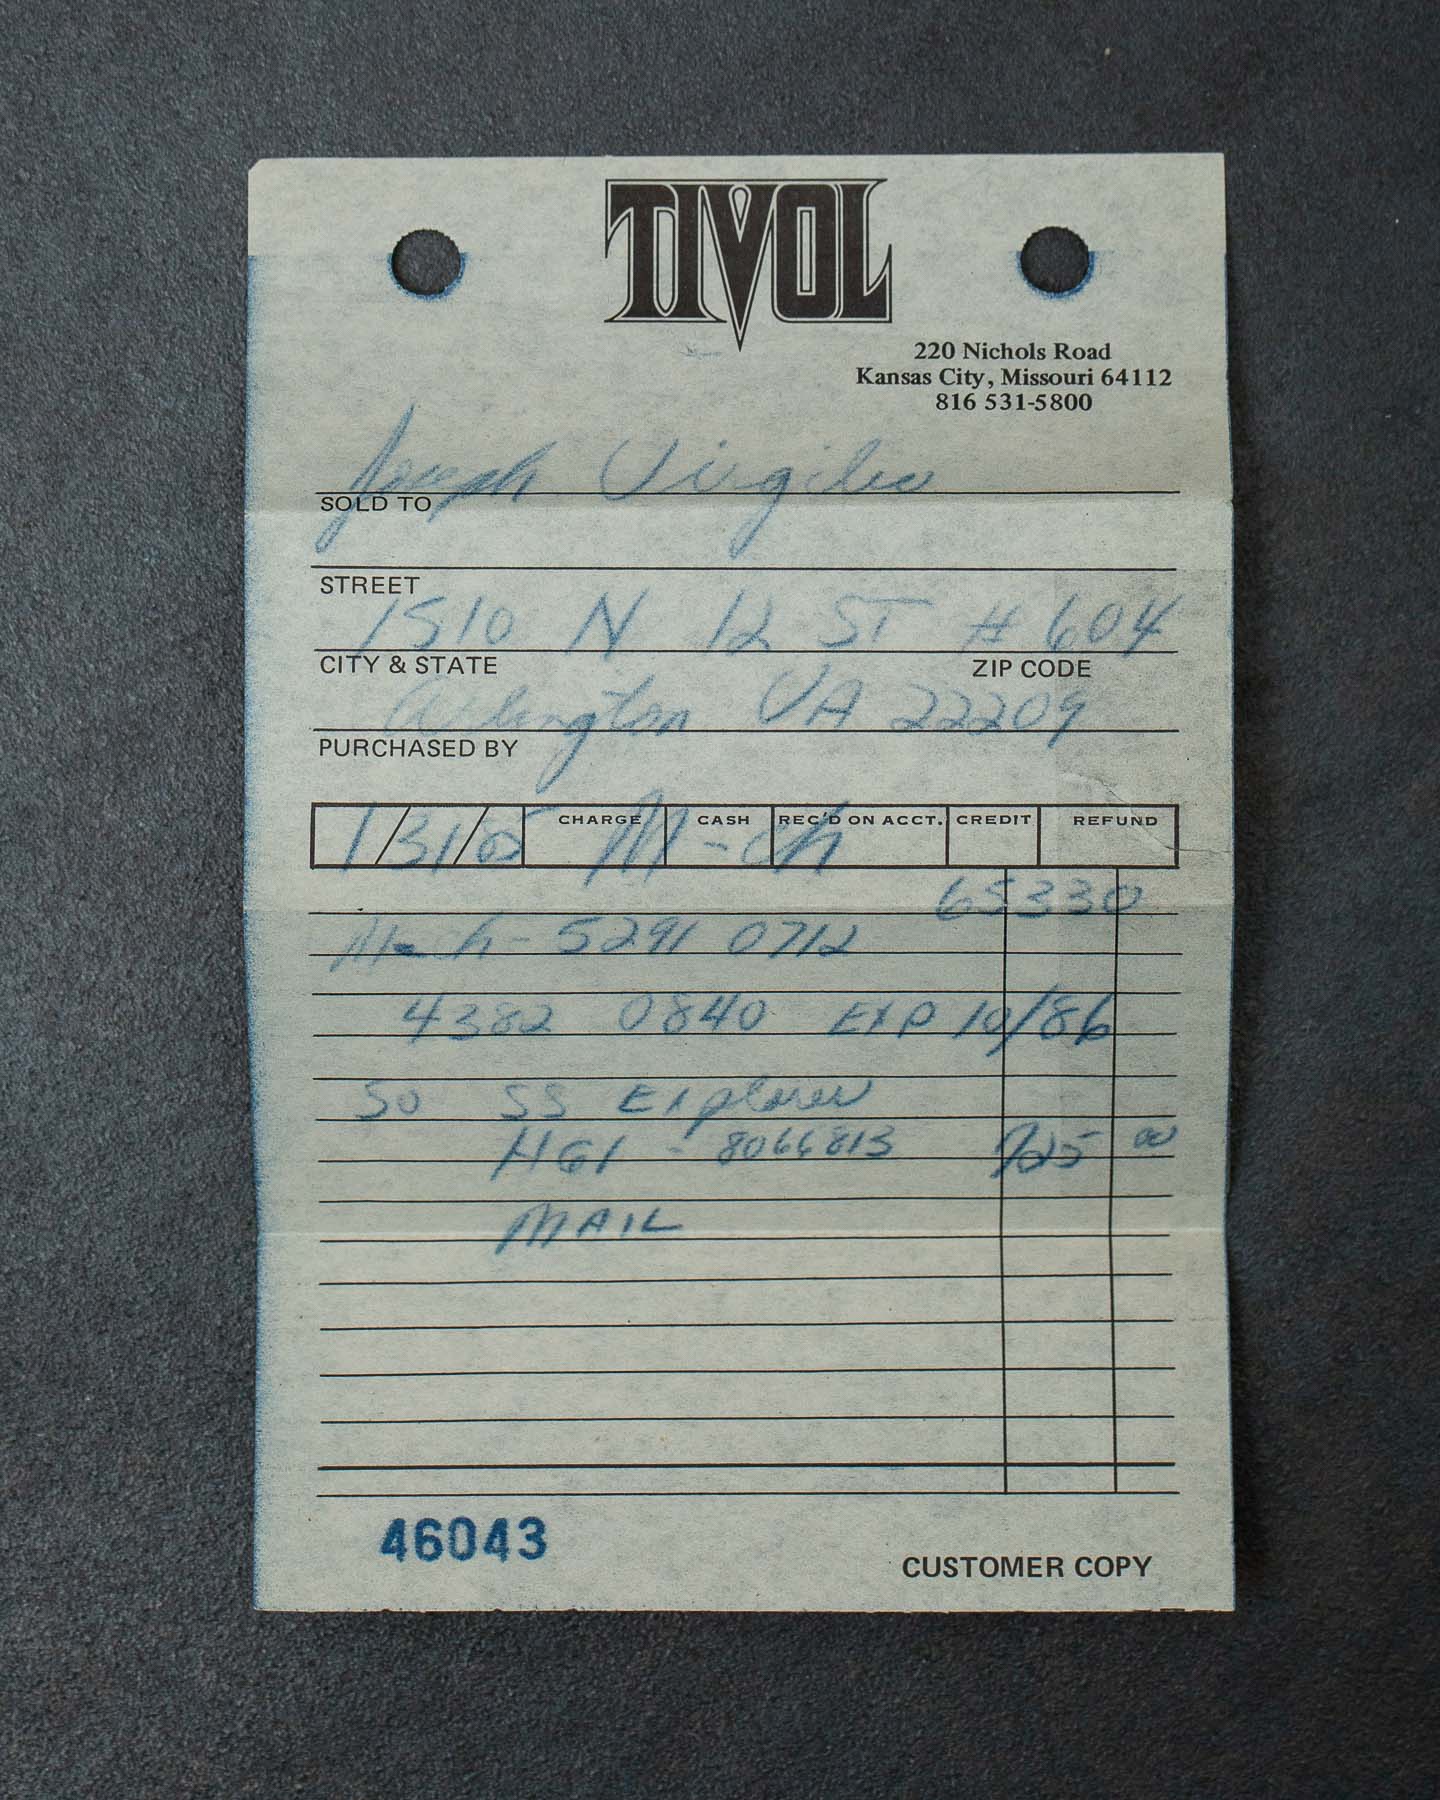 TIVOL
220 Nichols Road
Kansas City, Missouri 64112
816 531-5800
Joseph Virgilio
SOLD TO
STREET
1510 N 12 ST # 604
CITY & STATE ZIP CODE
Arlington VA 22209
PURCHASED BY
1/31/85 CHARGE CASH REC'D ON ACCT. CREDIT REFUND
M-ch
65330
M-ch- 5291 0712
4382 0840 EXP 10/86
SS Explorer
- 8066813 725 00
MAIL
46043
CUSTOMER COPY